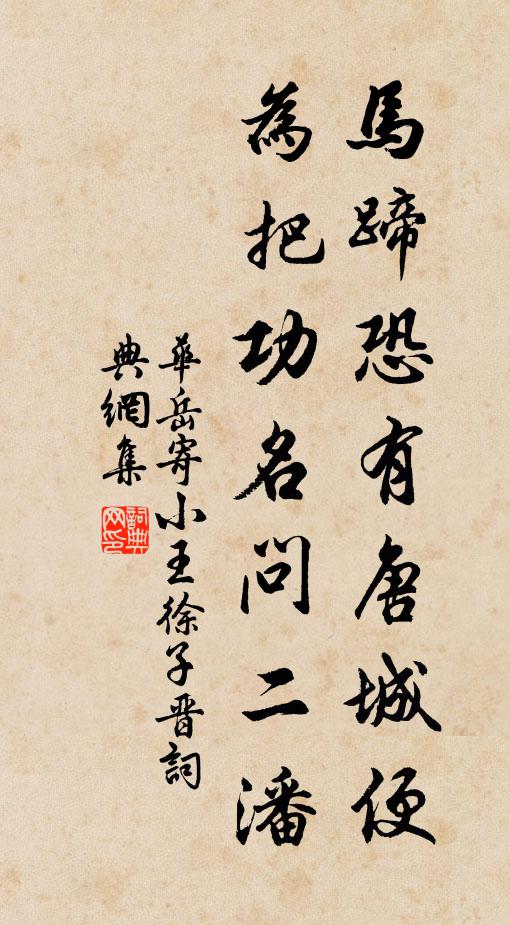 馬蹄恐有唐城便
為把功名問二潘
華岳寄小王徐子晋詞
典網集
詞典網印